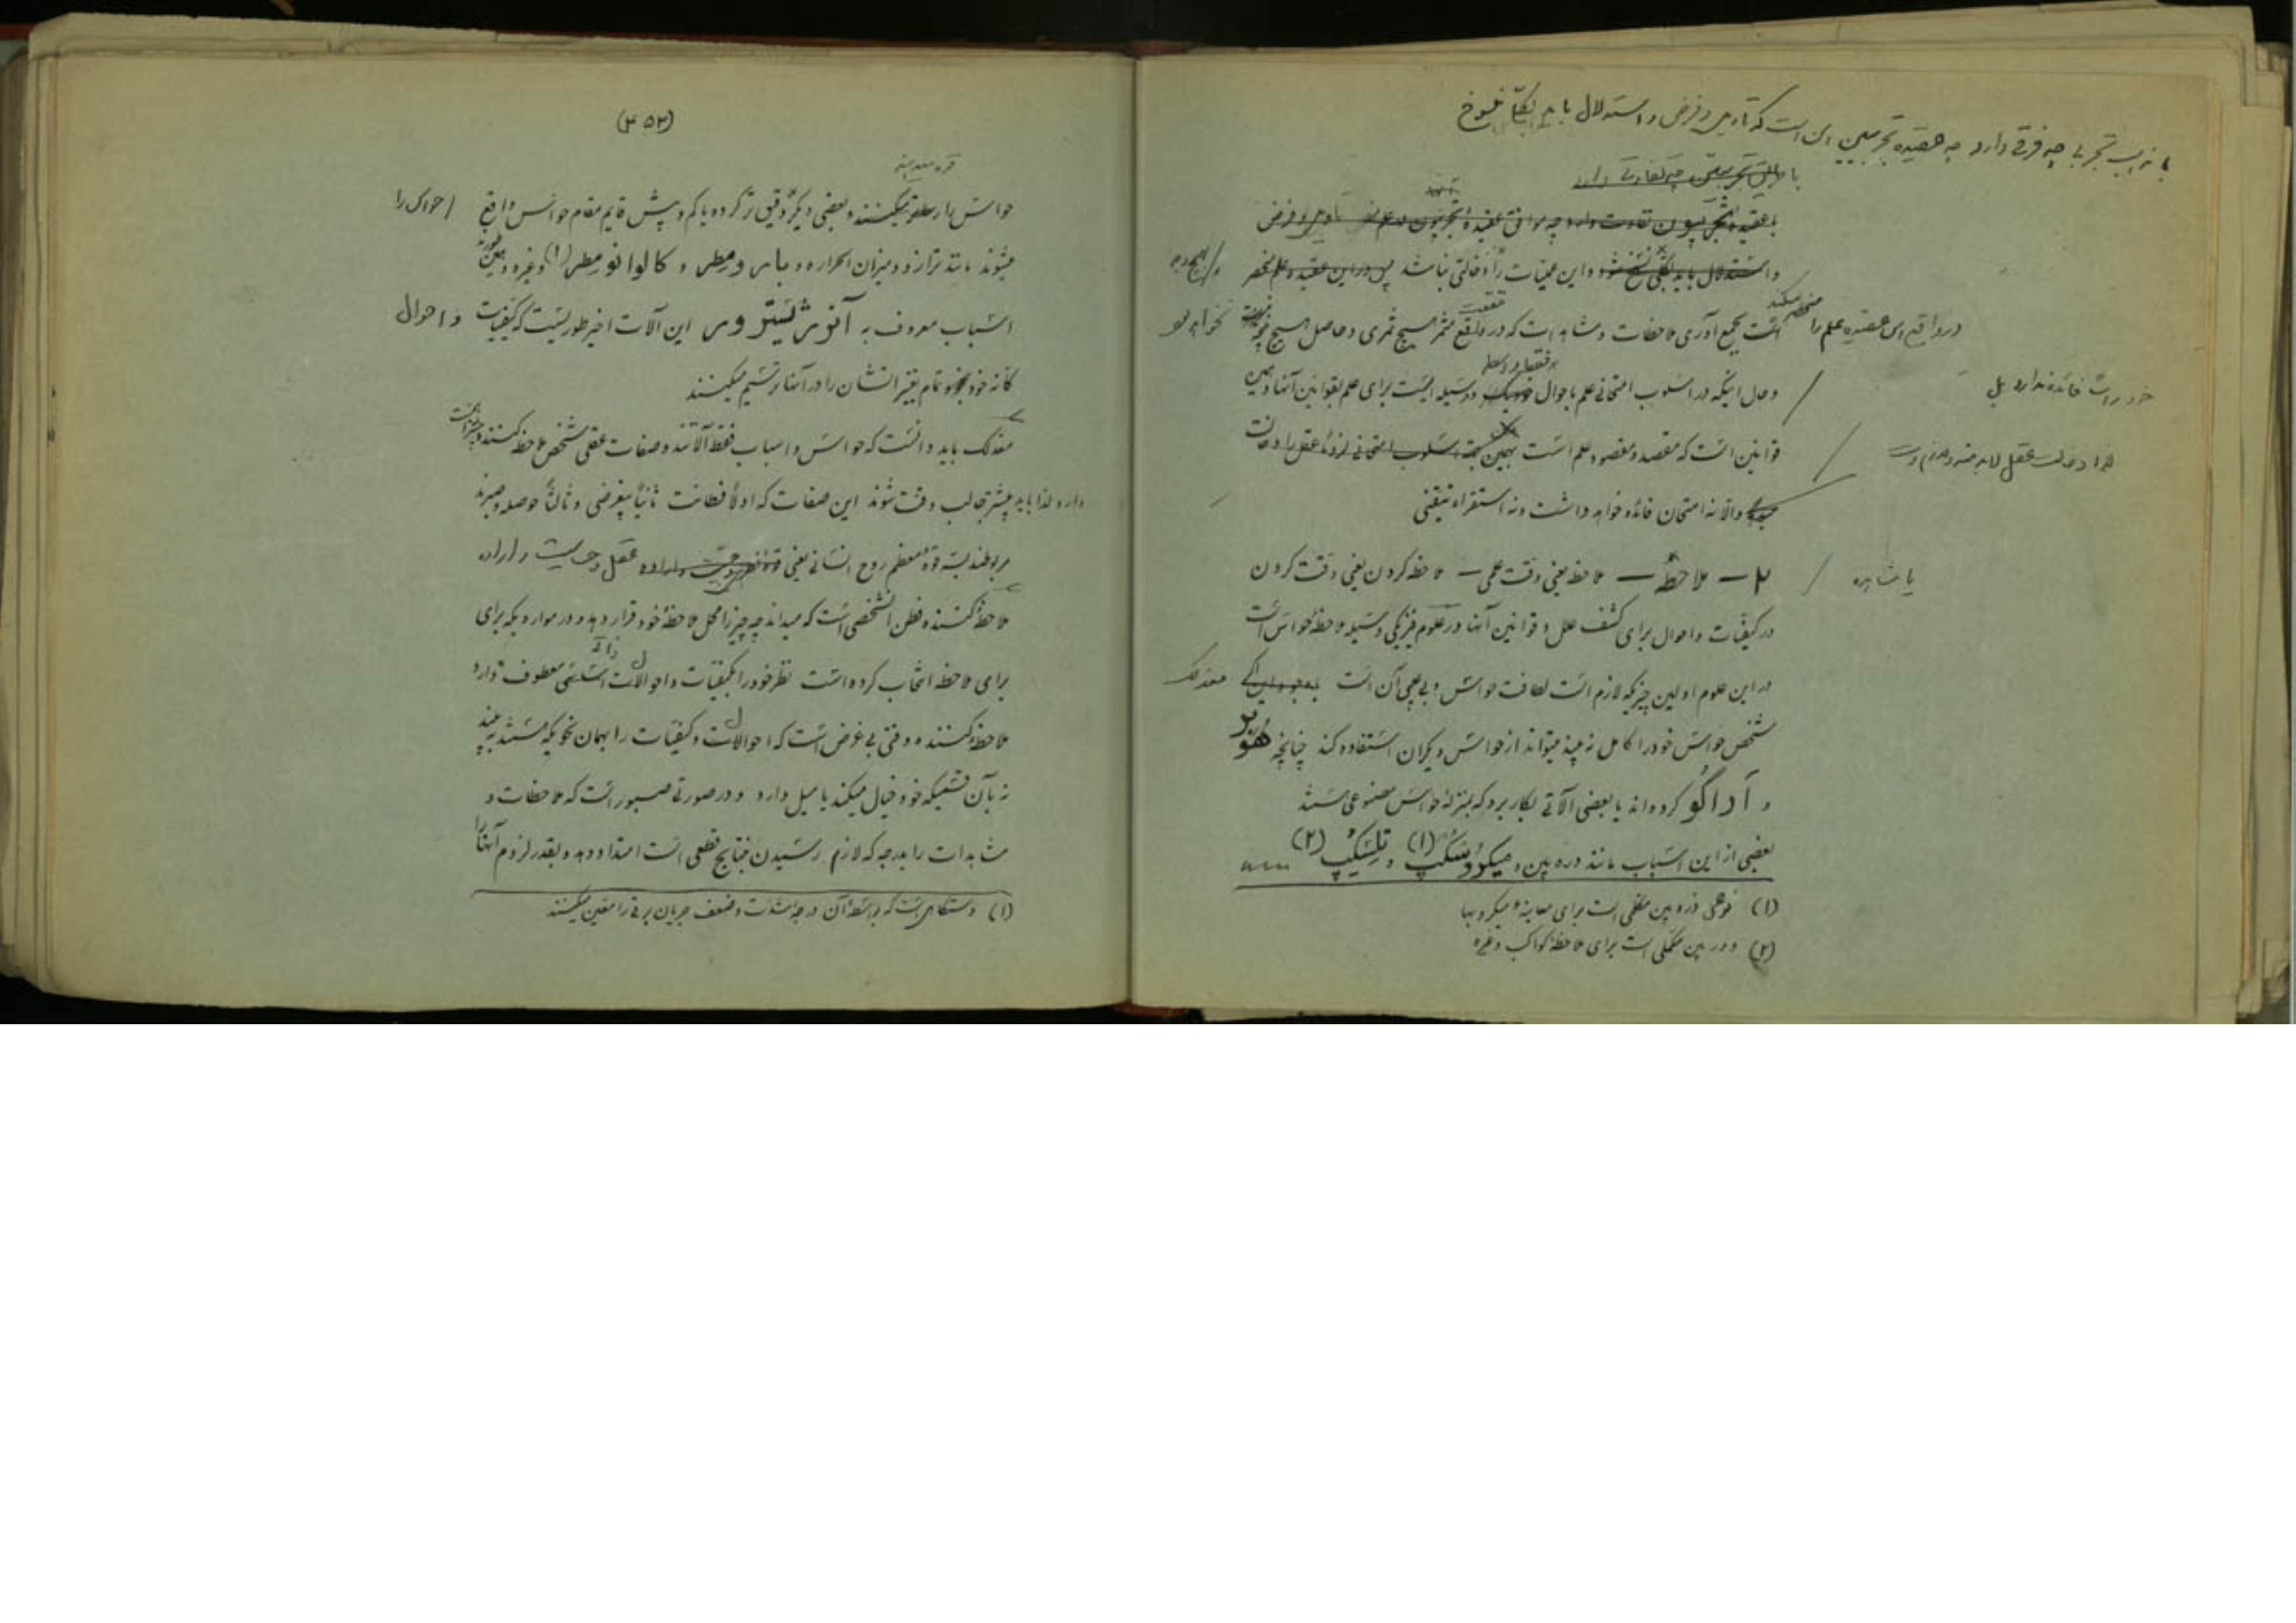 با مذهب تجربی چه فرقی دارد چه عقیده تجربیین این است که تأویل و فرض و استدلال باید بکلی منسوخ
با طریق تجربیین چه تفاوت دارد
با عقیده تجربیون تفاوت دارد چه موافق عقیده تجربیون در علم تأویل و فرض
و استدلال باید بکلی نسخ شود و این عملیات را دخالتی نباشد پس در این عقیده علم منحصر
و بهیچوجه
در واقع این عقیده علم را منحصر میکند
است بجمع آوری ملاحظات و مشاهدات که در واقع مثمر هیچ ثمری و حاصل هیچ
نخواهد بود
خود براسه فائده ندارد بل
و حال اینکه در اسلوب امتحانی علم باحوال فقط وسیله ایست برای علم بقوانین آنها و همین
قوانین است که مقصد و مقصود علم است بهمین جهة اسلوب امتحانی لزوماً عقل را دخالت
لهذا دخالت عقل لابد منه و لازم است
والا نه امتحان فائده خواهد داشت و نه استقراء تیقنی
۲ — ملاحظه — ملاحظه یعنی دقت علمی — ملاحظه کردن یعنی دقت کردن
یا مشاهده
در کیفیات و احوال برای کشف علل و قوانین آنها در علوم فیزیکی وسیله ملاحظه حواس است
در این علوم اولین چیزیکه لازم است لطافت حواس و بی عیبی آن است با وجود این معذلک
شخص حواس خود را کامل نه بیند میتواند از حواس دیگران استفاده کند چنانچه هُوبر
و آراگو کرده اند یا بعضی آلاتی بکار برد که بمنزلهٔ حواس مصنوعی هستند
بعضی از این اسباب مانند ذره بین و میکروُسکپ (۱) و تلِسکپ (۲)
(۱) نوعی ذره بین مکملی است برای معاینهٔ میکروبها
(۲) دوربین مکملی است برای ملاحظهٔ کواکب و غیره
(۲۵۳)
حواس را میکنند و بعضی دیگر دقیق تر کرده یا کم و بیش قایم مقام حواس واقع
حواس را
میشوند مانند ترازو و میزان الحراره و بارومطر و کالوانومطر (۱) و غیره و
اسباب معروف به آنورژیستروس این آلات اخیر طوریست که کیفیات و احوال
کأنه خود بخود تمام تغییراتشان را در آنها ترسیم میکنند
معذلک باید دانست که حواس و اسباب فقط آلاتند و صفات عقلی شخص ملاحظه کننده
دارد لهذا باید بیشتر جالب دقت شوند این صفات که اولاً فطانت ثانیاً بیغرضی و ثالثاً حوصله و صبرند
مربوطند بسه قوهٔ معظم روح انسانی یعنی عقل و حسیت و اراده
ملاحظه کننده فطن شخصی است که میداند چه چیز را محل ملاحظهٔ خود قرار دهد و در مواردیکه برای
برای ملاحظه انتخاب کرده است نظر خود را بکیفیات و احوالات اساسی معطوف دارد
ذاتی
ملاحظه کننده وقتی بی غرض است که احوالات و کیفیات را بهمان نحویکه هستند به بیند
نه بآن قسمیکه خود خیال میکند یا میل دارد و در صورتی صبور است که ملاحظات و
مشاهدات را بدرجه که لازم رسیدن بنتایج قطعی است امتداد دهد و بقدر لزوم آنها را
(۱) دستگاهی است که بواسطهٔ آن درجهٔ شدت و ضعف جریان برقی را معین میکنند